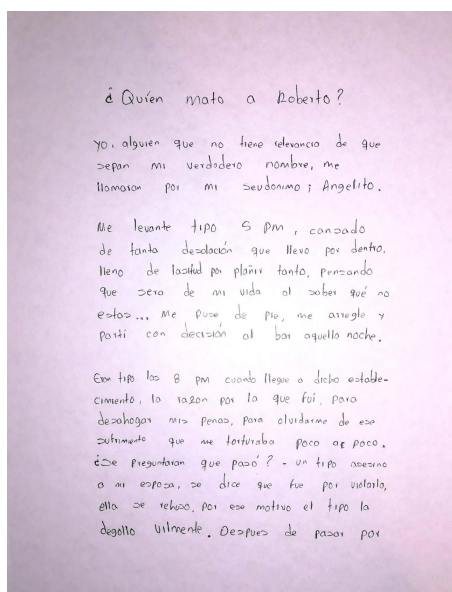 ¿Quién mato a Roberto?
Yo, alguien que no tiene relevancia de que
sepan mi verdadero nombre, me
llamaran por mi seudonimo; Angelito.
Me levante tipo 5 PM, cansado
de tanta desolación que llevo por dentro.
lleno de lasitud por plañir tanto, pensando
que sera de mi vida al saber qué no
estas... Me puse de pie, me arregle y
Partí con decisión al bar aquella noche.
Eran tipo las 8 pm cuando llegue a dicho estable-
cimiento, la razon por la que fuí, para
desahogar mis penas, para olvidarme de ese
sufrimiento que me torturaba poco a poco.
¿Se preguntaran que pasó? - un tipo asesino
a mi esposa, se dice que fue por violarla,
ella se rehuso, por ese motivo el tipo la
degollo vilmente. Despues de pasar por